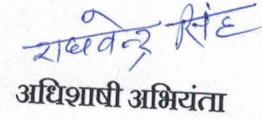 राघवेन्द्र सिंह
अधिशाषी अभियंता